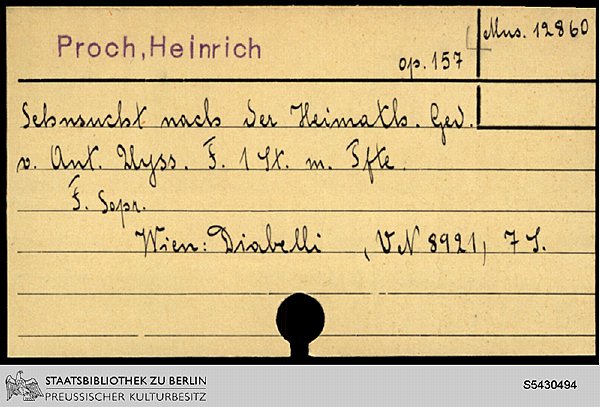 Proch, Heinrich
op. 157
4
Mus. 12860
Sehnsucht nach der Heimath. Ged.
v. Ant. Ulyss. F. 1 St. m. Pfte.
F. Sopr.
Wien: Diabelli , VN 8921, 7 S.
STAATSBIBLIOTHEK ZU BERLIN
PREUSSISCHER KULTURBESITZ
S5430494